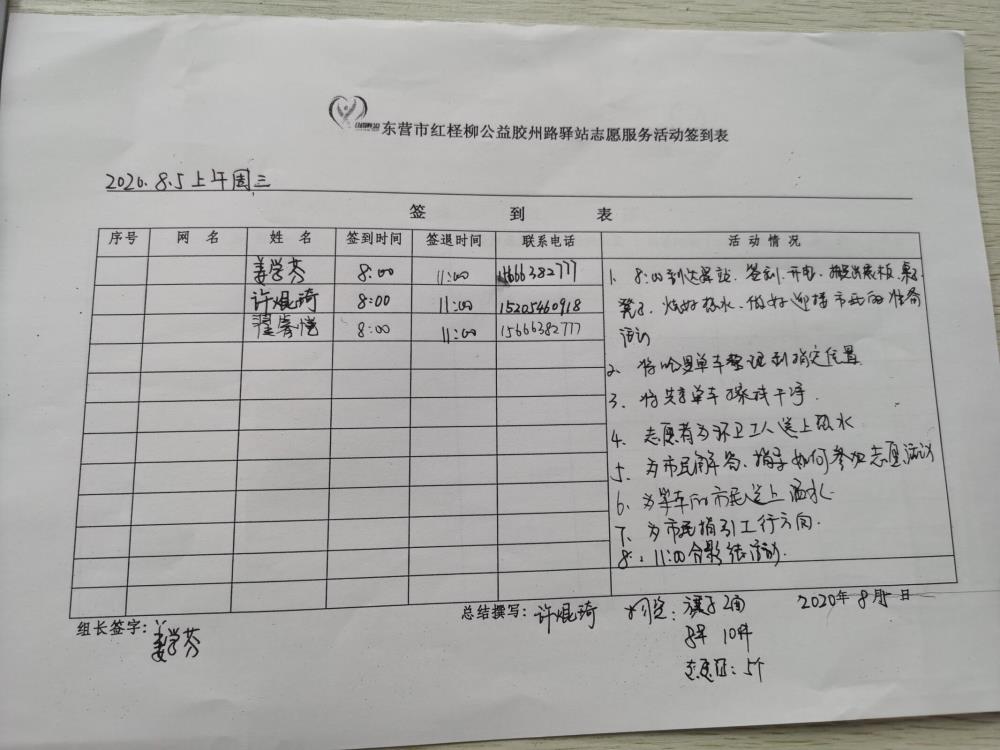 东营市红柽柳公益胶州路驿站志愿服务活动签到表
2020.8.5上午周三
签 到 表
序号 网 名 姓 名 签到时间 签退时间 联系电话 活动情况
姜学芬 8:00 11:00 15666382777
许焜琦 8:00 11:00 15205460918
8:00 11:00 15666382777
1. 8:00到达驿站、签到、开电、摆展板、桌子
凳子、烧好热水、做好迎接市民的准备
活动
2、将哈罗单车整理到指定位置
3、将共享单车擦拭干净.
4、志愿者为环卫工人送上热水
5、为市民解答、指导如何参加志愿活动
6、为等车的市民送上热水.
7、为市民指引工行方向.
8、11:00合影结活动.
组长签字: 姜学芬
总结撰写: 许焜琦
物资: 旗子2面
2020年8月5日
10件
志愿证: 5个